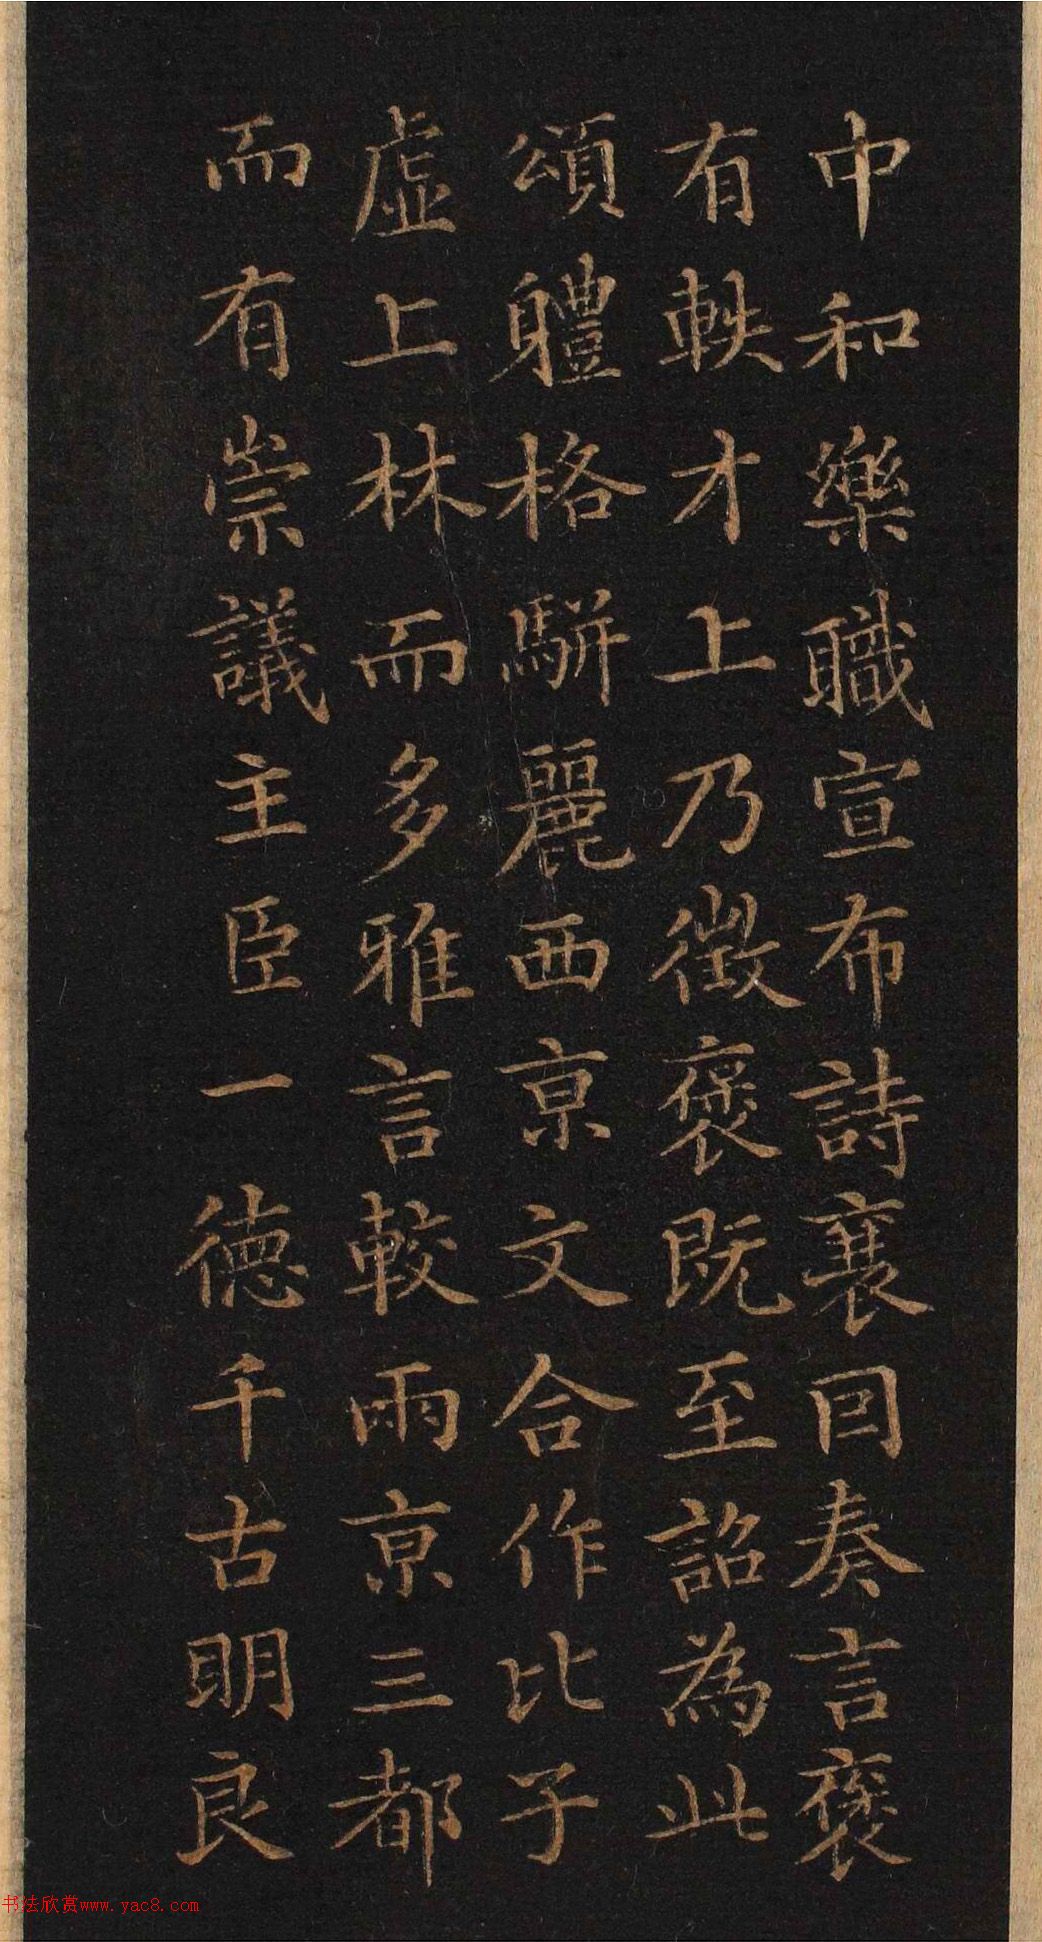 中和樂職宣布詩襄因奏言襃
有軼才上乃徵襃既至詔為此
頌軆格駢麗西亰文合作比子
虛上林而多雅言較兩亰三都
而有崇議主臣一德千古明良
书法欣赏www.yac8.com